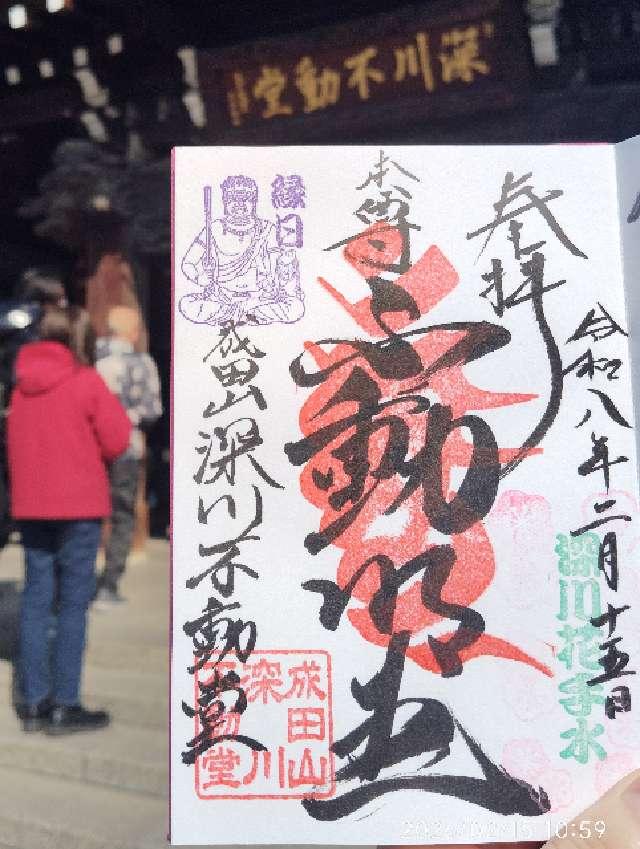 深川不動堂
令和八年二月十五日
深川花手水
奉拝
本尊
不動明王
縁日
成田山深川不動堂
成田山
深川
不動堂
2026/02/15 10:59